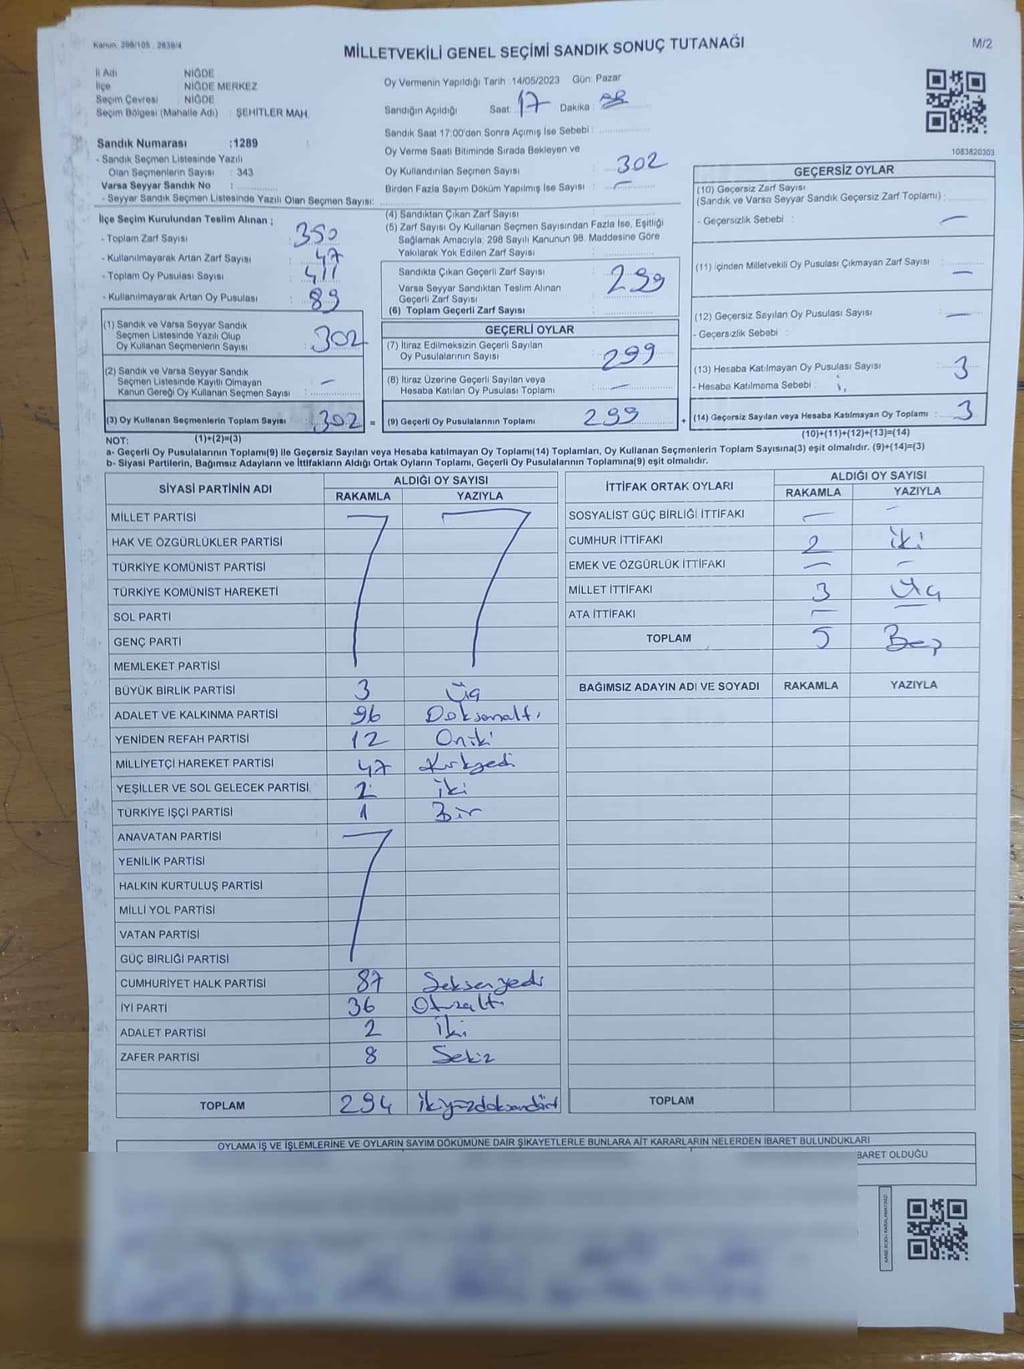 Kanun: 298/105 : 2839/4
MİLLETVEKİLİ GENEL SEÇİMİ SANDIK SONUÇ TUTANAĞI
M/2
İl Adı : NİĞDE
İlçe : NİĞDE MERKEZ
Seçim Çevresi : NİĞDE
Seçim Bölgesi (Mahalle Adı) : ŞEHİTLER MAH.
Sandık Numarası :1289
- Sandık Seçmen Listesinde Yazılı
Olan Seçmenlerin Sayısı : 343
Varsa Seyyar Sandık No :
- Seyyar Sandık Seçmen Listesinde Yazılı Olan Seçmen Sayısı:
Oy Vermenin Yapıldığı Tarih :14/05/2023 Gün: Pazar
Sandığın Açıldığı Saat: 17 Dakika:
Sandık Saat 17:00'den Sonra Açımış İse Sebebi :
Oy Verme Saati Bitiminde Sırada Bekleyen ve
Oy Kullandırılan Seçmen Sayısı : 302
Birden Fazla Sayım Döküm Yapılmış İse Sayısı : —
1083820303
İlçe Seçim Kurulundan Teslim Alınan ;
- Toplam Zarf Sayısı : 350
- Kullanılmayarak Artan Zarf Sayısı : 47
- Toplam Oy Pusulası Sayısı : 411
- Kullanılmayarak Artan Oy Pusulası : 89
(1) Sandık ve Varsa Seyyar Sandık
Seçmen Listesinde Yazılı Olup
Oy Kullanan Seçmenlerin Sayısı : 302
(2) Sandık ve Varsa Seyyar Sandık
Seçmen Listesinde Kayıtlı Olmayan
Kanun Gereği Oy Kullanan Seçmen Sayısı : —
(3) Oy Kullanan Seçmenlerin Toplam Sayısı : 302 =
(4) Sandıktan Çıkan Zarf Sayısı :
(5) Zarf Sayısı Oy Kullanan Seçmen Sayısından Fazla İse, Eşitliği
Sağlamak Amacıyla; 298 Sayılı Kanunun 98. Maddesine Göre
Yakılarak Yok Edilen Zarf Sayısı :
Sandıkta Çıkan Geçerli Zarf Sayısı : 299
Varsa Seyyar Sandıktan Teslim Alınan
Geçerli Zarf Sayısı :
(6) Toplam Geçerli Zarf Sayısı :
GEÇERLİ OYLAR
(7) İtiraz Edilmeksizin Geçerli Sayılan
Oy Pusulalarının Sayısı : 299
(8) İtiraz Üzerine Geçerli Sayılan veya
Hesaba Katılan Oy Pusulası Toplamı : —
(9) Geçerli Oy Pusulalarının Toplamı : 299 +
GEÇERSİZ OYLAR
(10) Geçersiz Zarf Sayısı
(Sandık ve Varsa Seyyar Sandık Geçersiz Zarf Toplamı) :
- Geçersizlik Sebebi : —
(11) İçinden Milletvekili Oy Pusulası Çıkmayan Zarf Sayısı : —
(12) Geçersiz Sayılan Oy Pusulası Sayısı : —
- Geçersizlik Sebebi :
(13) Hesaba Katılmayan Oy Pusulası Sayısı : 3
- Hesaba Katılmama Sebebi :
(14) Geçersiz Sayılan veya Hesaba Katılmayan Oy Toplamı : 3
NOT: (1)+(2)=(3) (10)+(11)+(12)+(13)=(14)
a- Geçerli Oy Pusulalarının Toplamı(9) ile Geçersiz Sayılan veya Hesaba katılmayan Oy Toplamı(14) Toplamları, Oy Kullanan Seçmenlerin Toplam Sayısına(3) eşit olmalıdır. (9)+(14)=(3)
b- Siyasi Partilerin, Bağımsız Adayların ve İttifakların Aldığı Ortak Oyların Toplamı, Geçerli Oy Pusulalarının Toplamına(9) eşit olmalıdır.
SİYASİ PARTİNİN ADI ALDIĞI OY SAYISI
RAKAMLA YAZIYLA
MİLLET PARTİSİ
HAK VE ÖZGÜRLÜKLER PARTİSİ
TÜRKİYE KOMÜNİST PARTİSİ
TÜRKİYE KOMÜNİST HAREKETİ
SOL PARTİ
GENÇ PARTİ
MEMLEKET PARTİSİ
BÜYÜK BİRLİK PARTİSİ 3 Üç
ADALET VE KALKINMA PARTİSİ 96 Doksanaltı
YENİDEN REFAH PARTİSİ 12 Oniki
MİLLİYETÇİ HAREKET PARTİSİ 47 Kırkyedi
YEŞİLLER VE SOL GELECEK PARTİSİ 2 İki
TÜRKİYE İŞÇİ PARTİSİ 1 Bir
ANAVATAN PARTİSİ
YENİLİK PARTİSİ
HALKIN KURTULUŞ PARTİSİ
MİLLİ YOL PARTİSİ
VATAN PARTİSİ
GÜÇ BİRLİĞİ PARTİSİ
CUMHURİYET HALK PARTİSİ 87 Seksenyedi
İYİ PARTİ 36 Otuzaltı
ADALET PARTİSİ 2 İki
ZAFER PARTİSİ 8 Sekiz
TOPLAM 294 ikiyüzdoksandört
İTTİFAK ORTAK OYLARI ALDIĞI OY SAYISI
RAKAMLA YAZIYLA
SOSYALİST GÜÇ BİRLİĞİ İTTİFAKI — —
CUMHUR İTTİFAKI 2 iki
EMEK VE ÖZGÜRLÜK İTTİFAKI — —
MİLLET İTTİFAKI 3 Üç
ATA İTTİFAKI — —
TOPLAM 5 Beş
BAĞIMSIZ ADAYIN ADI VE SOYADI RAKAMLA YAZIYLA
TOPLAM
OYLAMA İŞ VE İŞLEMLERİNE VE OYLARIN SAYIM DÖKÜMÜNE DAİR ŞİKAYETLERLE BUNLARA AİT KARARLARIN NELERDEN İBARET BULUNDUKLARI
BARET OLDUĞU